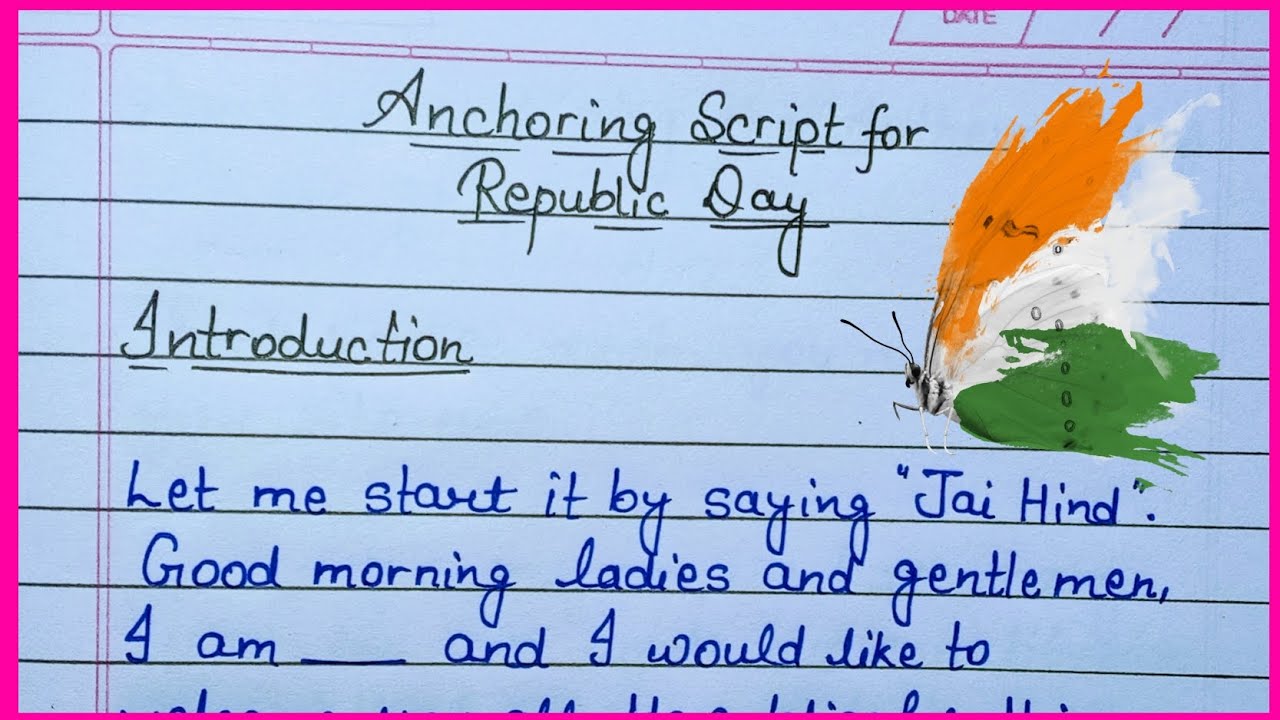 DATE
Anchoring Script for
Republic Day
Introduction
Let me start it by saying "Jai Hind".
Good morning ladies and gentlemen,
I am ___ and I would like to